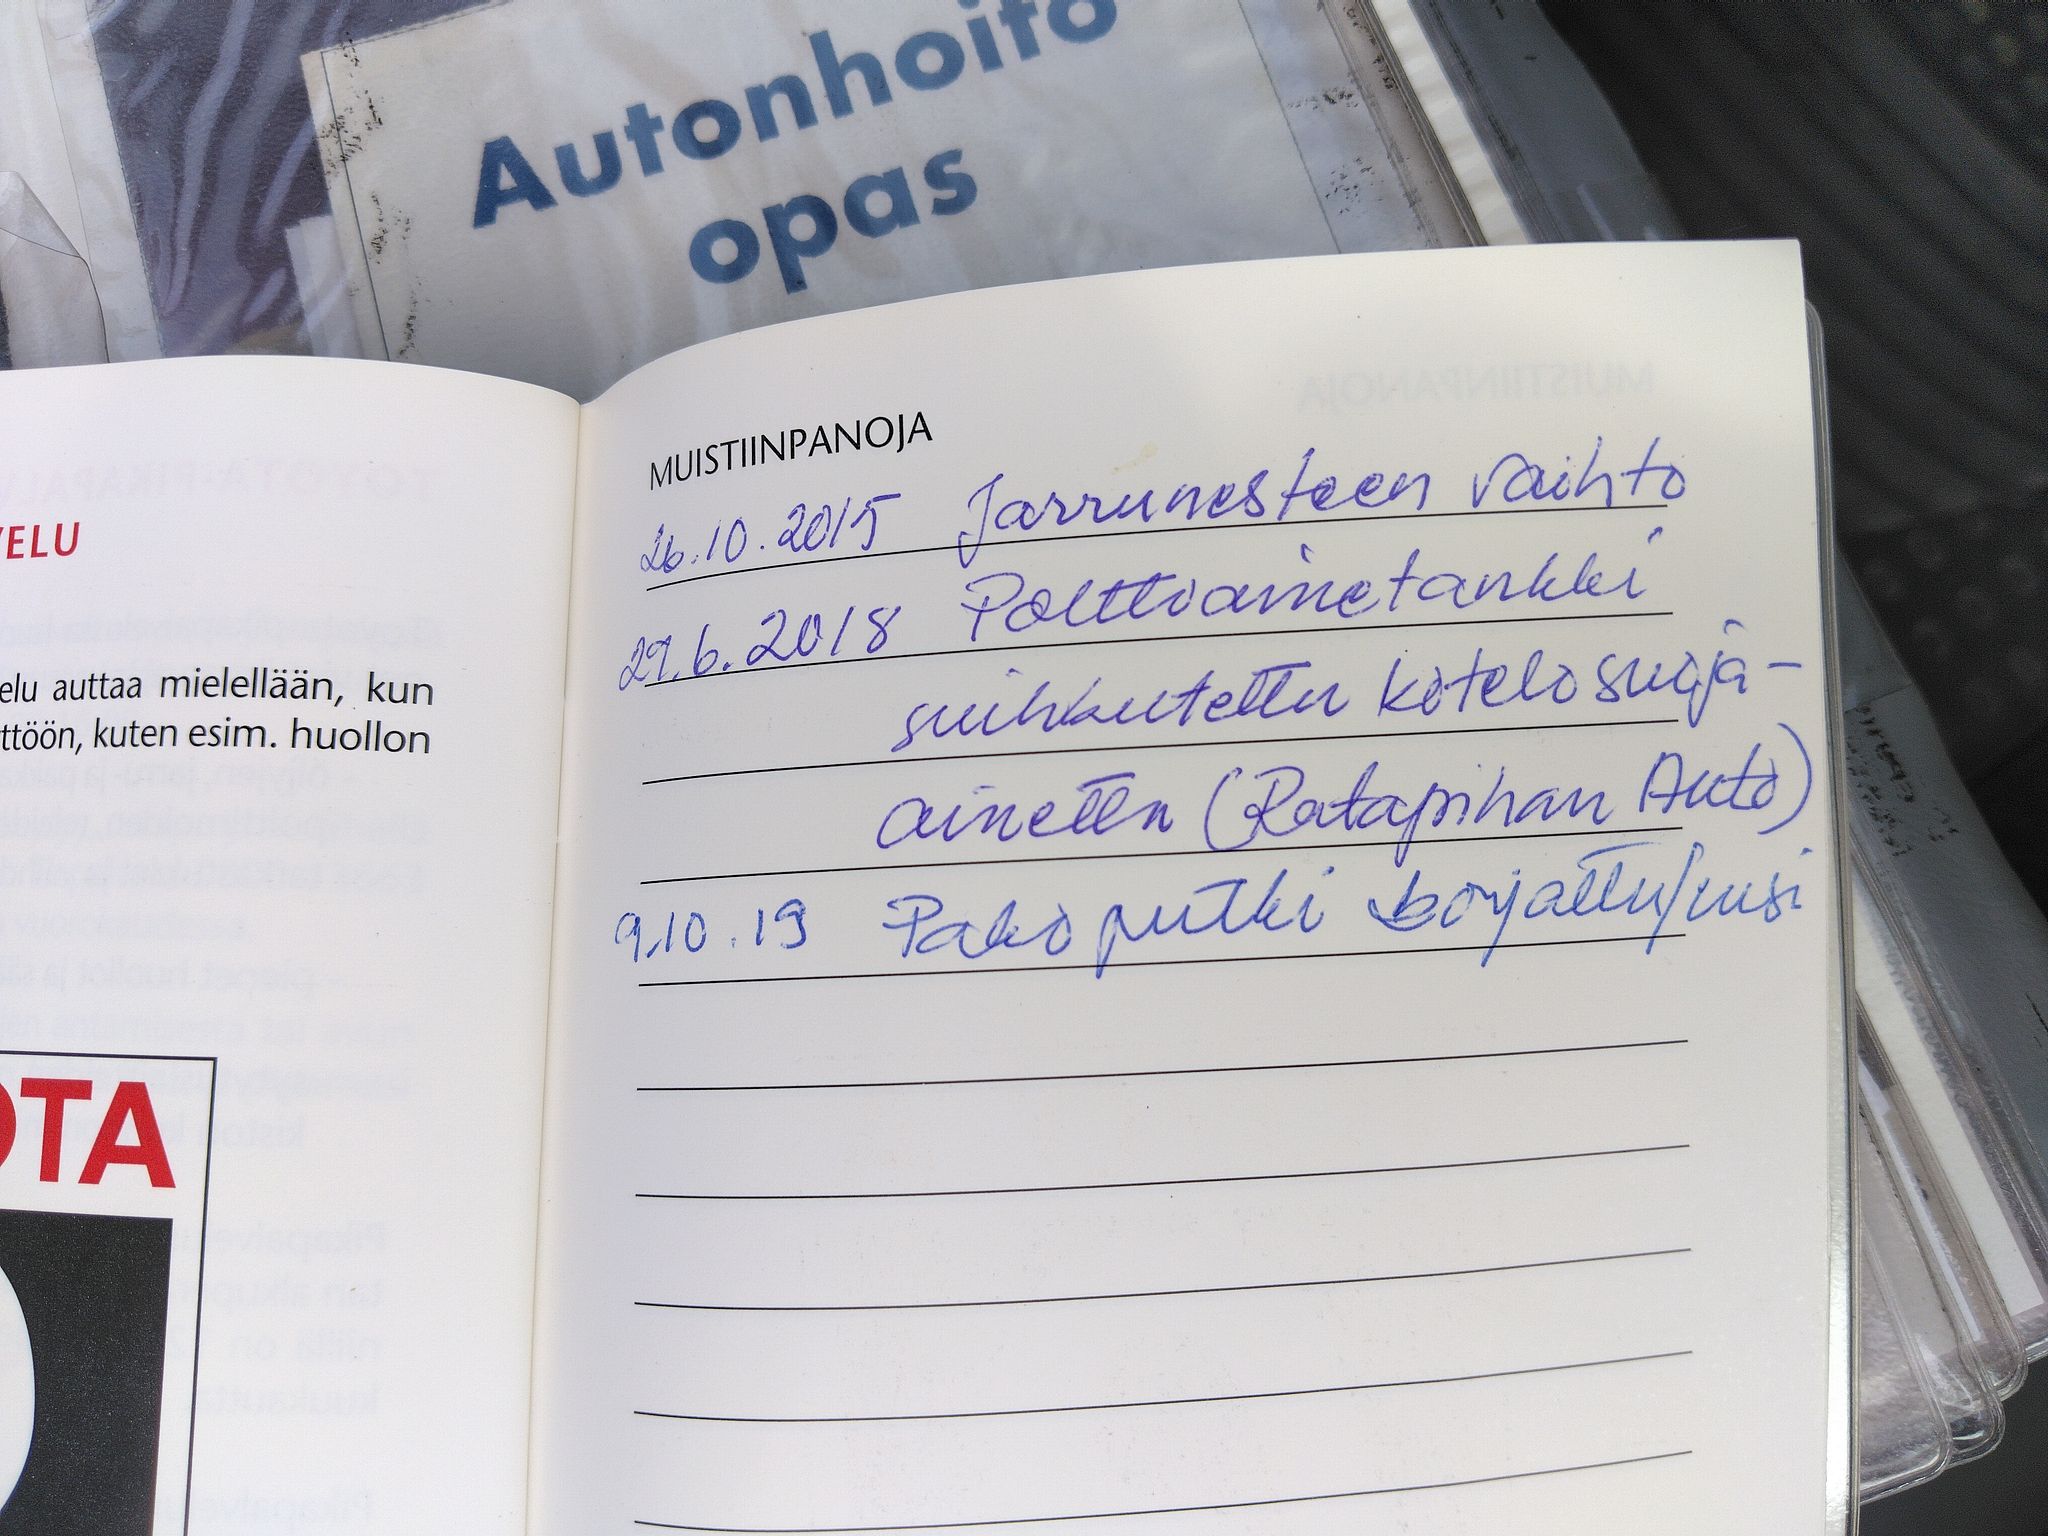 Autonhoito
opas
MUISTIINPANOJA
26.10.2015 Jarrunesteen vaihto
29.6.2018 Polttoainetankki
suihkutettu kotelosuoja-
ainetta (Ratapihan Auto)
9.10.19 Pakoputki korjattu/uusi
VELU
elu auttaa mielellään, kun
ttöön, kuten esim. huollon
OTA